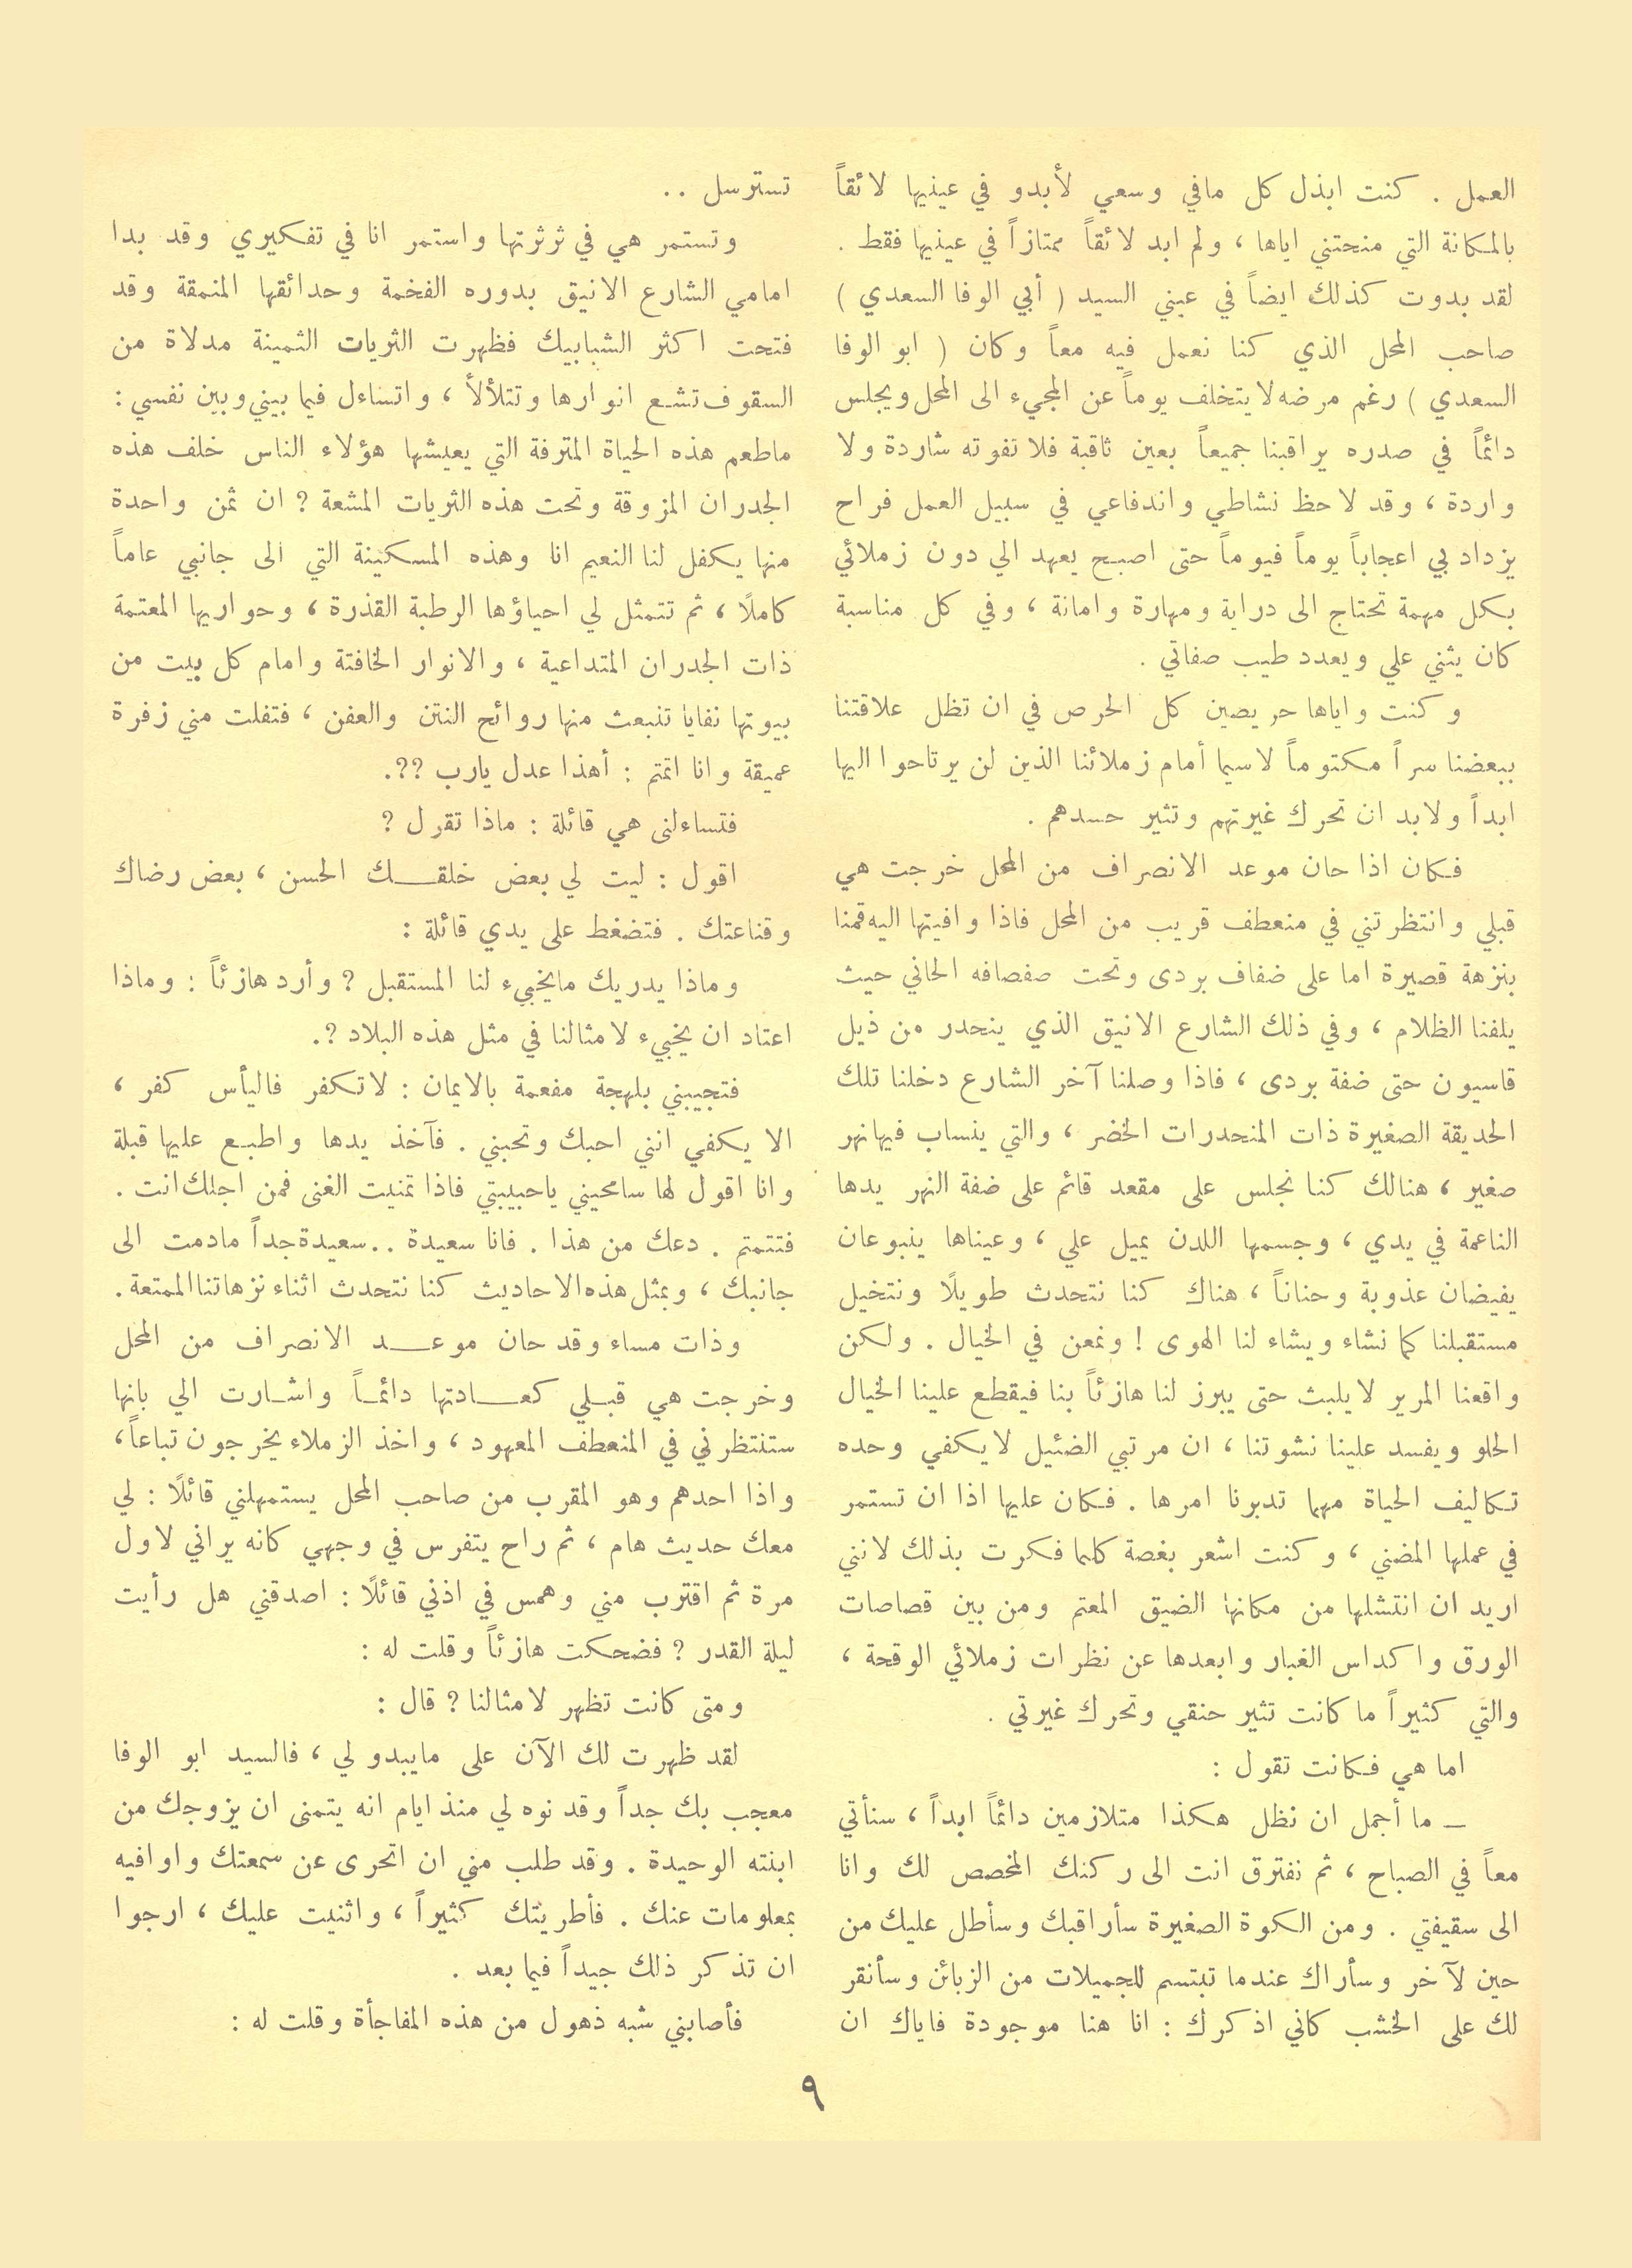 العمل . كنت ابذل كل مافي وسعي لأبدو في عينيها لائقاً
بالمكانة التي منحتني اياها ، ولم ابد لائقاً ممتازاً في عينيها فقط .
لقد بدوت كذلك ايضاً في عيني السيد ( أبي الوفا السعدي )
صاحب المحل الذي كنا نعمل فيه معاً وكان ( ابو الوفا
السعدي ) رغم مرضه لا يتخلف يوماً عن المجيء الى المحل ويجلس
دائماً في صدره يراقبنا جميعاً بعين ثاقبة فلا تفوته شاردة ولا
واردة ، وقد لاحظ نشاطي واندفاعي في سبيل العمل فراح
يزداد بي اعجاباً يوماً فيوماً حتى اصبح يعهد الي دون زملائي
بكل مهمة تحتاج الى دراية ومهارة وامانة ، وفي كل مناسبة
كان يثني علي ويعدد طيب صفاتي .
وكنت واياها حريصين كل الحرص في ان تظل علاقتنا
ببعضنا سراً مكتوماً لاسيما أمام زملائنا الذين لن يرتاحوا اليها
ابداً ولابد ان تحرك غيرتهم وتثير حسدهم .
فكان اذا حان موعد الانصراف من المحل خرجت هي
قبلي وانتظرتني في منعطف قريب من المحل فاذا وافيتها اليه قمنا
بنزهة قصيرة اما على ضفاف بردى وتحت صفصافه الحاني حيث
يلفنا الظلام ، وفي ذلك الشارع الانيق الذي ينحدر من ذيل
قاسيون حتى ضفة بردى ، فاذا وصلنا آخر الشارع دخلنا تلك
الحديقة الصغيرة ذات المنحدرات الخضر ، والتي ينساب فيها نهر
صغير ، هنالك كنا نجلس على مقعد قائم على ضفة النهر يدها
الناعمة في يدي ، وجسمها اللدن يميل علي ، وعيناها ينبوعان
يفيضان عذوبة وحناناً ، هناك كنا نتحدث طويلاً ونتخيل
مستقبلنا كما نشاء ويشاء لنا الهوى ! ونمعن في الخيال . ولكن
واقعنا المرير لا يلبث حتى يبرز لنا هازئاً بنا فيقطع علينا الخيال
الحلو ويفسد علينا نشوتنا ، ان مرتبي الضئيل لا يكفي وحده
تكاليف الحياة مهما تدبرنا امرها . فكان عليها اذا ان تستمر
في عملها المضني ، وكنت اشعر بغصة كلما فكرت بذلك لانني
اريد ان انتشلها من مكانها الضيق المعتم ومن بين قصاصات
الورق واكداس الغبار وابعدها عن نظرات زملائي الوقحة ،
والتي كثيراً ما كانت تثير حنقي وتحرك غيرتي .
اما هي فكانت تقول :
ــ ما أجمل ان نظل هكذا متلازمين دائماً ابداً ، سنأتي
معاً في الصباح ، ثم نفترق انت الى ركنك المخصص لك وانا
الى سقيفتي . ومن الكوة الصغيرة سأراقبك وسأطل عليك من
حين لآخر وسأراك عندما تبتسم للجميلات من الزبائن وسأنقر
لك على الخشب كاني اذكرك : انا هنا موجودة فاياك ان
تسترسل . .
وتستمر هي في ثرثرتها واستمر انا في تفكيري وقد بدا
امامي الشارع الانيق بدوره الفخمة وحدائقها المنمقة وقد
فتحت اكثر الشبابيك فظهرت الثريات الثمينة مدلاة من
السقوف تشع انوارها وتتلألأ ، واتساءل فيما بيني وبين نفسي :
ماطعم هذه الحياة المترفة التي يعيشها هؤلاء الناس خلف هذه
الجدران المزوقة وتحت هذه الثريات المشعة ? ان ثمن واحدة
منها يكفل لنا النعيم انا وهذه المسكينة التي الى جانبي عاماً
كاملاً ، ثم تتمثل لي احياؤها الرطبة القذرة ، وحواريها المعتمة
ذات الجدران المتداعية ، والانوار الخافتة وامام كل بيت من
بيوتها نفايا تنبعث منها روائح النتن والعفن ، فتفلت مني زفرة
عميقة وانا اتمتم : أهذا عدل يارب ??.
فتساءلنى هي قائلة : ماذا تقول ?
اقول : ليت لي بعض خلقـــك الحسن ، بعض رضاك
وقناعتك . فتضغط على يدي قائلة :
وماذا يدريك مايخبيء لنا المستقبل ? وأرد هازئاً : وماذا
اعتاد ان يخبيء لامثالنا في مثل هذه البلاد ?.
فتجيبني بلهجة مفعمة بالايمان : لاتكفر فاليأس كفر ،
الا يكفي انني احبك وتحبني . فآخذ يدها واطبع عليها قبلة
وانا اقول لها سامحيني ياحبيبتي فاذا تمنيت الغنى فمن اجلك انت .
فتتمتم . دعك من هذا . فانا سعيدة . . سعيدة جداً مادمت الى
جانبك ، وبمثل هذه الاحاديث كنا نتحدث اثناء نزهاتنا الممتعة .
وذات مساء وقد حان موعـــد الانصراف من المحل
وخرجت هي قبلي كعـــادتها دائمـاً واشـارت الي بانها
ستنتظرني في المنعطف المعهود ، واخذ الزملاء يخرجون تباعاً ،
واذا احدهم وهو المقرب من صاحب المحل يستمهلني قائلاً : لي
معك حديث هام ، ثم راح يتفرس في وجهي كانه يراني لاول
مرة ثم اقترب مني وهمس في اذني قائلاً : اصدقني هل رأيت
ليلة القدر ? فضحكت هازئاً وقلت له :
ومتى كانت تظهر لامثالنا ? قال :
لقد ظهرت لك الآن على مايبدو لي ، فالسيد ابو الوفا
معجب بك جداً وقد نوه لي منذ ايام انه يتمنى ان يزوجك من
ابنته الوحيدة . وقد طلب مني ان اتحرى عن سمعتك واوافيه
بمعلومات عنك . فأطريتك كثيراً ، واثنيت عليك ، ارجوا
ان تذكر ذلك جيداً فيما بعد .
فأصابني شبه ذهول من هذه المفاجأة وقلت له :
٩